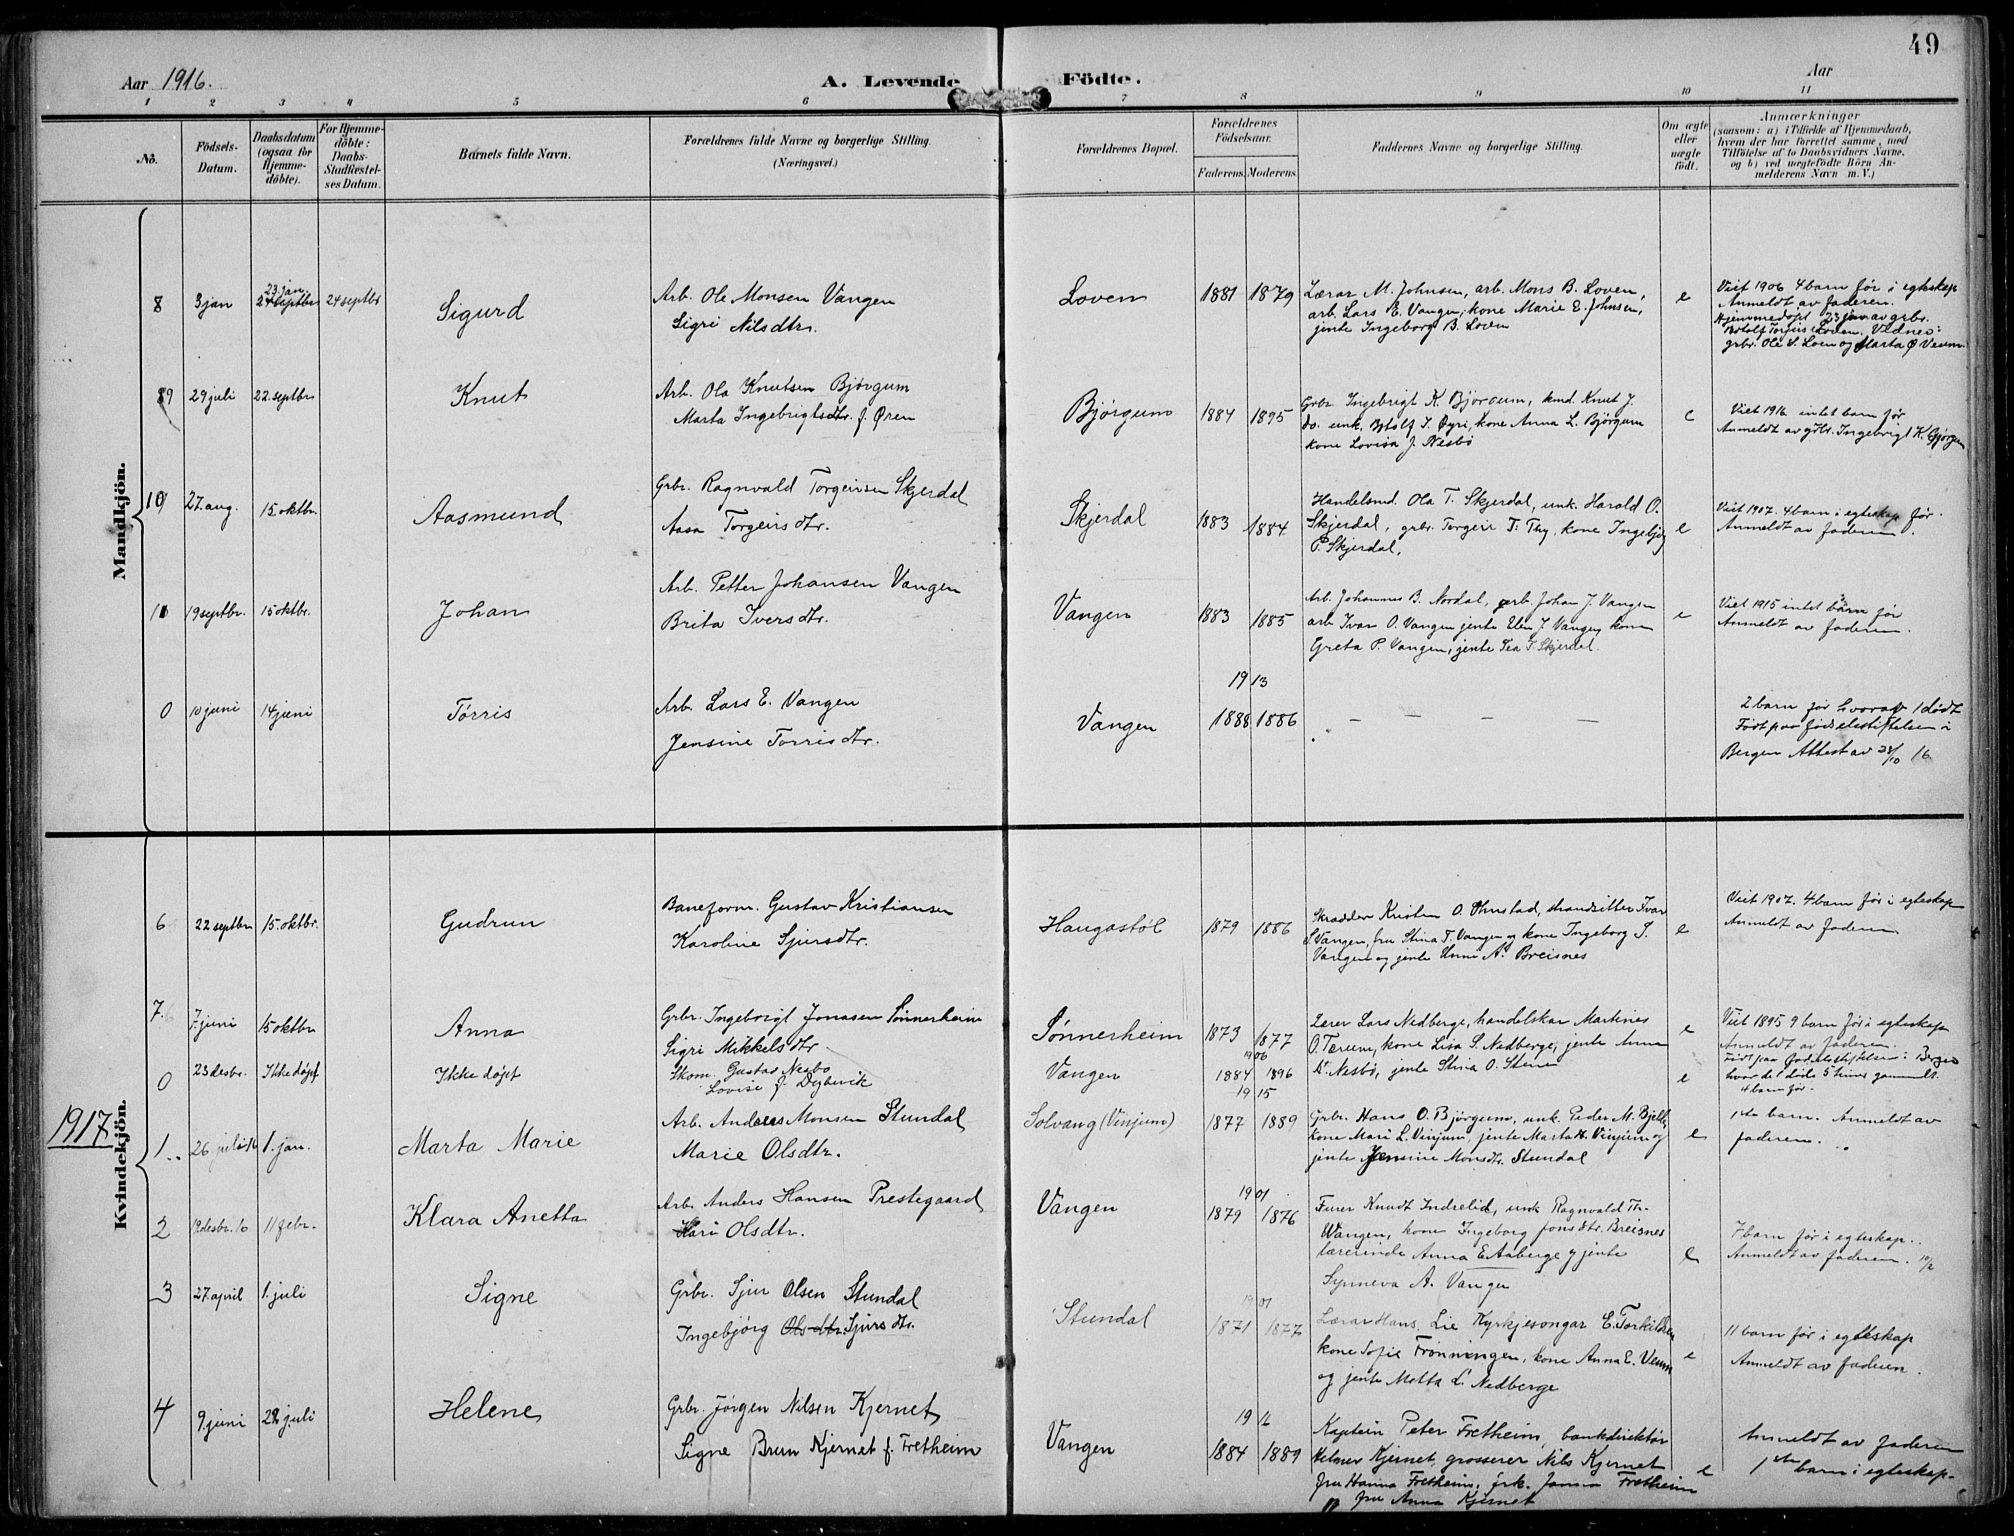 49
Aar 1916.
A. Levende Födte.
Aar
1 2 3 4 5 6 7 8 9 10 11
No.
Födsels-Datum.
Daabsdatum (ogsaa for Hjemme-döbte).
For Hjemme-döbte: Daabs-Stadfæstel-ses Datum.
Barnets fulde Navn.
Forældrenes fulde Navne og borgerlige Stilling. (Næringsvei.)
Forældrenes Bopæl.
Forældrenes Födselsaar.
Faderens. Moderens.
Faddernes Navne og borgerlige Stilling.
Om ægte eller uægte födt.
Anmærkninger
(saasom: a) i Tilfælde af Hjemmedaab,
hvem der har forrettet samme, med
Tilföielse af to Daabsvidners Navne.
og b) ved uægtefödte Börn An-
melderens Navn m. V.)
Mandkjön.
8 3 jan 23. jan. 24 septbr 24 septbr
Sigurd
Arb. Ole Monsen Vangen
Sigri Nilsdtr.
Loven 1881 1879
Lærar M. Johnsen, arb. Mons B. Loven,
arb. Lars E. Vangen, kone Marie E. Johnsen,
jente Ingeborg B. Loven
e
Viet 1906 4 barn før i egteskap
Anmeldt av faderen.
Hjemmedøpt 23 jan av grbr.
Botolf Torgeirs Loven. Vidner:
grbr. Ole S. Loen og Marta Ø Veum.
9 29 juli 22. septbr
Knut
Arb. Ola Knutsen Bjørgum
Marta Ingebrigtsdtr. f. Øren
Bjørgum 1884 1895
Grbr. Ingebrigt K. Bjørgum, kmd. Knut J.
do. unk. Botolf I. Øyri, kone Anna L. Bjørgum
kone Lovisa J. Nesbø
e
Viet 1916 intet barn før
Anmeldt av grbr. Ingebrigt K. Bjørgum
10 27. aug. 15. oktbr.
Aasmund
Grbr. Ragnvald Torgeirsen Skjerdal
Aasa Torgeirsdtr.
Skjerdal 1883 1884
Handelsmd. Ola T. Skjerdal, unk. Harald O.
Skjerdal, grbr. Torgeir T. Thy, kone Ingebjørg
P. Skjerdal,
e
Viet 1907. 4 barn i egteskap før.
Anmeldt av faderen.
11 19 septbr. 15 oktbr.
Johan
Arb. Petter Johansen Vangen
Brita Iversdtr.
Vangen 1883 1885
Arb. Johannes B. Nordal, arb. Johan J. Vangen
arb Ivar O. Vangen jente Elen J. Vangen, kone
Greta P. Vangen, jente Tea T. Skjerdal.
e
Viet 1915 intet barn før
Anmeldt av faderen.
0 10 juni 14 juni
Tórris
Arb. Lars E. Vangen
Jensine Torrisdtr.
Vangen 1913
1888 1886
2 barn før hvorav 1 dødt
Født paa fødselsstiftelsen i
Bergen Attest av 28/10 16
Kvindekjön.
6 22 septbr 15. oktbr.
Gudrun
Baneform. Gustav Kristiansen
Karoline Sjursdtr.
Haugastøl 1879 1886
Skrædder Kristen O. Ohnstad, strandsitter Ivar
S. Vangen, fru Stina T. Vangen og kone Ingeborg S.
Vangen og jente Unni A. Breisnes
e
Viet 1907. 4 barn før i egteskap
Anmeldt av faderen
7. 7. juni 15 oktbr
Anna
Grbr. Ingebrigt Jonasen Sønnerheim
Sigri Mikkelsdtr.
Sønnerheim 1873 1877
Lærer Lars Nedberge, handelskar Martines
O. Terum, kone Lisa S. Nedberge, jente Anna
L. Nesbø, jente Stina O. Steine
e
Viet 1895 9 barn før i egteskap
Anmeldt av faderen.
0 23 desbr. Ikke døpt
Ikke døpt
Skom. Gustav Nesbø
Lovise J. Dybevik
Vangen 1906
1884 1896
e
Født paa fødselsstiftelsen i Bergen
hvor det døde 5 timer gammelt.
4 barn før.
1917
1.. 26 juli 16 1. jan.
Marta Marie
Arb. Anders Monsen Stundal
Marie Olsdtr.
Solvang (Vinjum) 1915
1877 1889
Grbr. Hans O. Bjørgum, unk. Peder M. Bjelle,
kone Mari L. Vinjum, jente Marta H. Vinjum og
jente Jensine Monsdtr. Stundal
e
1ste barn. Anmeldt av
faderen.
2 19 desbr. 16 11 febr.
Klara Anetta
Arb. Anders Hansen Prestegaard
Kari Olsdtr.
Vangen 1901
1879 1876
Furer Knudt Indrelid, unk Ragnvald Th.
Vangen, kone Ingeborg Jonsdtr. Breisnes
lærerinde Anna E. Aaberge og jente
Synneva A. Vangen
e
7 barn før i egteskap.
Anmeldt av faderen. 10/2
3 27. april 1. juli
Signe
Grbr. Sjur Olsen Stundal
Ingebjørg Olsdtr. Sjursdtr.
Stundal 1901
1871 1877
Lærar Hans Lie Kyrkjesongar E. Torkildsen
kone Sofie Frønningen, kone Anna E. Veum
og jente Motta L. Nedberge
e
11 barn før i egteskap
Anmeldt av faderen.
4 9 juni 29 juli
Helene
Grbr. Jørgen Nilsen Kjernet
Signe Brun Kjernet f. Fretheim
Vangen 1916
1884 1889
Kaptein Peter Fretheim, bankdirektør
Helmer Kjernet, grosserer Nils Kjernet
fru Hanna Fretheim, frk. Janna Fretheim
fru Anna Kjernet
e
Anmeldt av faderen
1ste barn i egteskap.